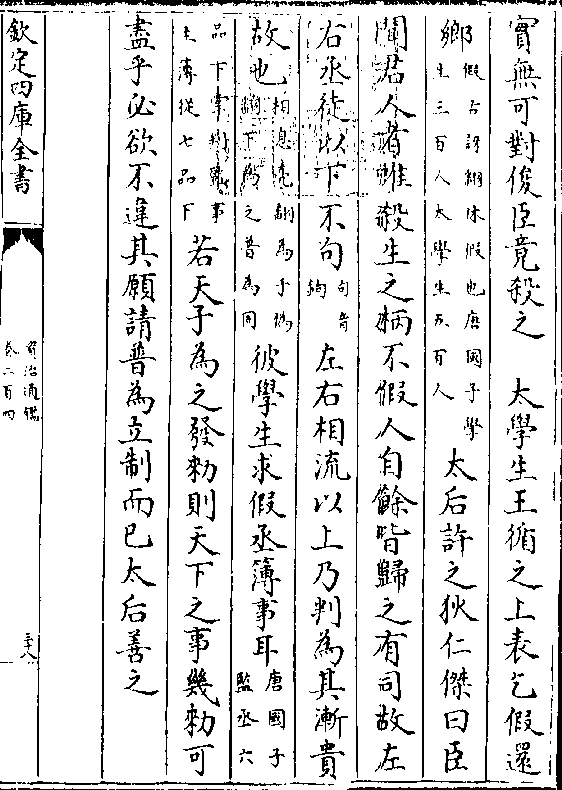 實無可對俊臣竟殺之　太學生王循之上表乞假還
鄉假古訝翻休假也唐國子學生三百人太學生五百人太后許之狄仁傑曰臣
聞君人者惟殺生之柄不假人自餘皆歸之有司故左
右丞徒以下不句句音鉤左右相流以上乃判為其漸貴
故也相息亮翻為于偽翻下為之普為同彼學生求假丞簿事耳唐國子監丞六
品下掌判監事主簿從七品下若天子為之發勅則天下之事幾勅可
盡乎必欲不違其願請普為立制而已太后善之
欽定四庫全書
資治通鑑
卷二百四